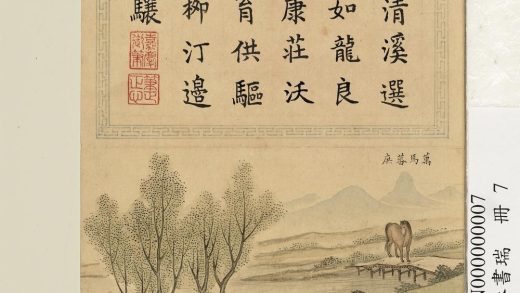 清溪選
如龍良
康莊沃
育供驅
柳汀邊
驤
萬馬蕃庶
書瑞 冊 7
N000000007